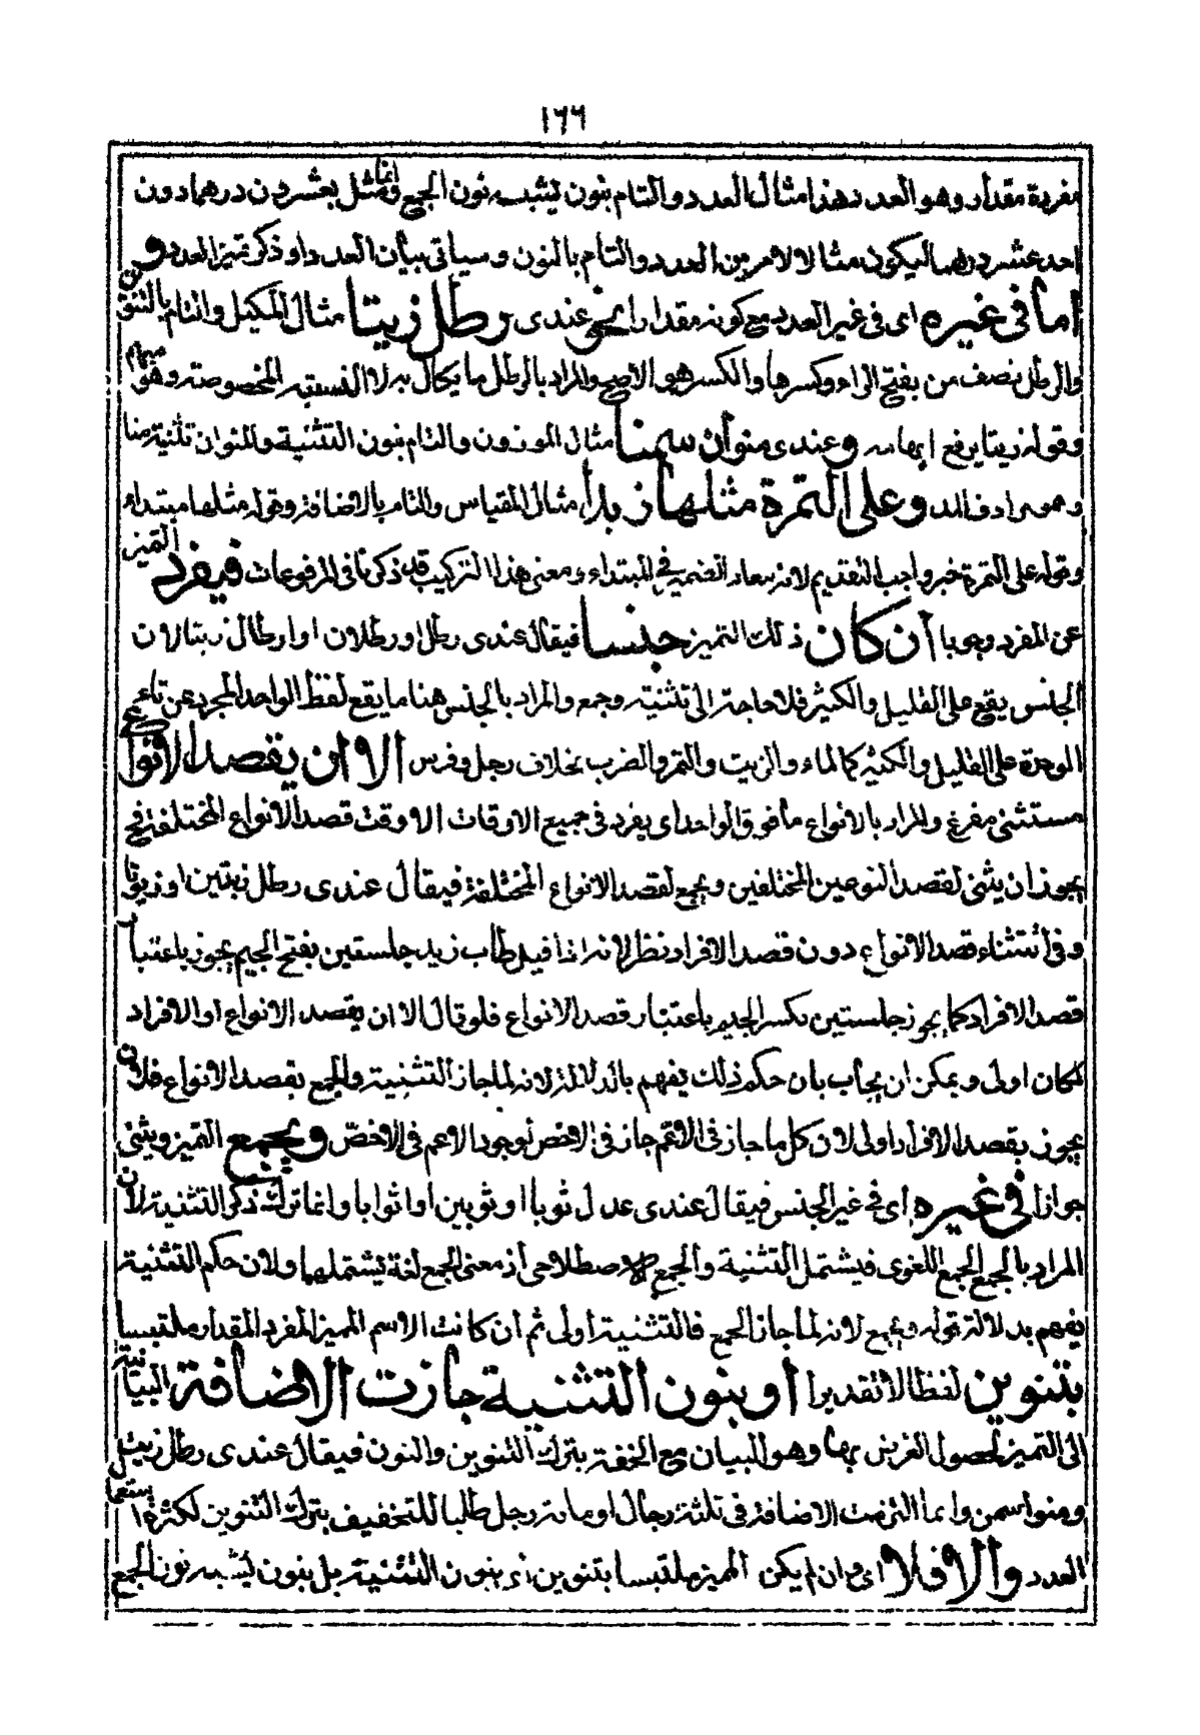 ١٦٦
مفردة مقدار وهو العدد وهذا مثال العدد والتام بنون يشبه نون الجمع وانما مثل بعشرون درهما دون
احد عشر درهما ليكون مثالا لامرين العدد والتام بالنون وسيأتي بيان العدد او ذكر تميز العدد و
اما فى غيره اى فى غير العدد مع كونه مقدارا نحو عندى رطل زيتا مثال المكيل والتام بالتنوين
والرطل نصف من بفتح الراء وكسرها والكسر هو الاصح والمراد بالرطل ما يكال به لا المخصوصة وهو مبهم
وقوله زيتا يرفع ابهامه وعندى منوان سمنا مثال الموزون والتام بنون التثنية والمنوان تثنية منا
وعلى التمرة مثلها زبدا مثال المقياس والتام بالاضافة وقوله مثلها مبتداء
وقوله على التمرة خبر واجب التقديم لانه الضمير فى المبتداء ومعنى هذا التركيب قد ذكرنا فى المرفوعات فيفرد التميز
عن المفرد وجوبا ان كان ذلك التميز جنسا فيقال عندى رطل او رطلان او ارطال زيتا لان
الجنس يقع على القليل والكثير فلا حاجة الى تثنيته وجمعه والمراد بالجنس هنا ما يقع لفظ الواحد المجرد عن تاء
الوحدة على القليل والكثير كالماء والزيت والتمر والضرب بخلاف رجل وفرس الا ان يقصد الانواع
مستثنى مفرغ والمراد بالانواع ما فوق الواحد اى يفرد فى جميع الاوقات الا وقت قصد الانواع المختلفة فح
يجوز ان يثنى لقصد النوعين المختلفين ويجمع لقصد الانواع المختلفة فيقال عندى رطل زيتين او زيوتا
وفى استثناء قصد الانواع دون قصد الافراد نظر لانه اذا قيل طاب زيد جلستين بفتح الجيم يجوز باعتبار
قصد الافراد كما يجوز جلستين بكسر الجيم باعتبار قصد الانواع فلو قال الا ان يقصد الانواع او الافراد
لكان اولى ويمكن ان يجاب بان حكم ذلك يفهم بالدلالة لانه لما جاز التثنية والجمع بقصد الانواع فلان
يجوز بقصد الافراد اولى لان كل ما جاز فى الاعم جاز فى الاخص لوجود الاعم فى الاخص ويجمع التميز ويثنى
جوازا فى غيره اى فى غير الجنس فيقال عندى عدل ثوبا او ثوبين او اثوابا وانما ترك ذكر التثنية لان
المراد بالجمع الجمع اللغوى فيشتمل التثنية والجمع الاصطلاحى اذ معنى الجمع لغة يشتملهما ولان حكم التثنية
يفهم بدلالة قوله ويجمع لانه لما جاز الجمع فالتثنية اولى ثم ان كانت الاسم المميز المفرد المقدار ملتبسا
بتنوين لفظا لا تقديرا او بنون التثنية جازت الاضافة البيانية
الى التميز لحصول الغرض بها وهو البيان مع الخفة بترك التنوين والنون فيقال عندى رطل زيت
ومنوا سمن وانما التزمت الاضافة فى ثلثة رجال او مائة رجل طلبا للتخفيف بترك التنوين لكثرة استعمال
العدد والا فلا اى وان لم يكن المميز ملتبسا بتنوين او بنون التثنية بل بنون يشبه نون الجمع